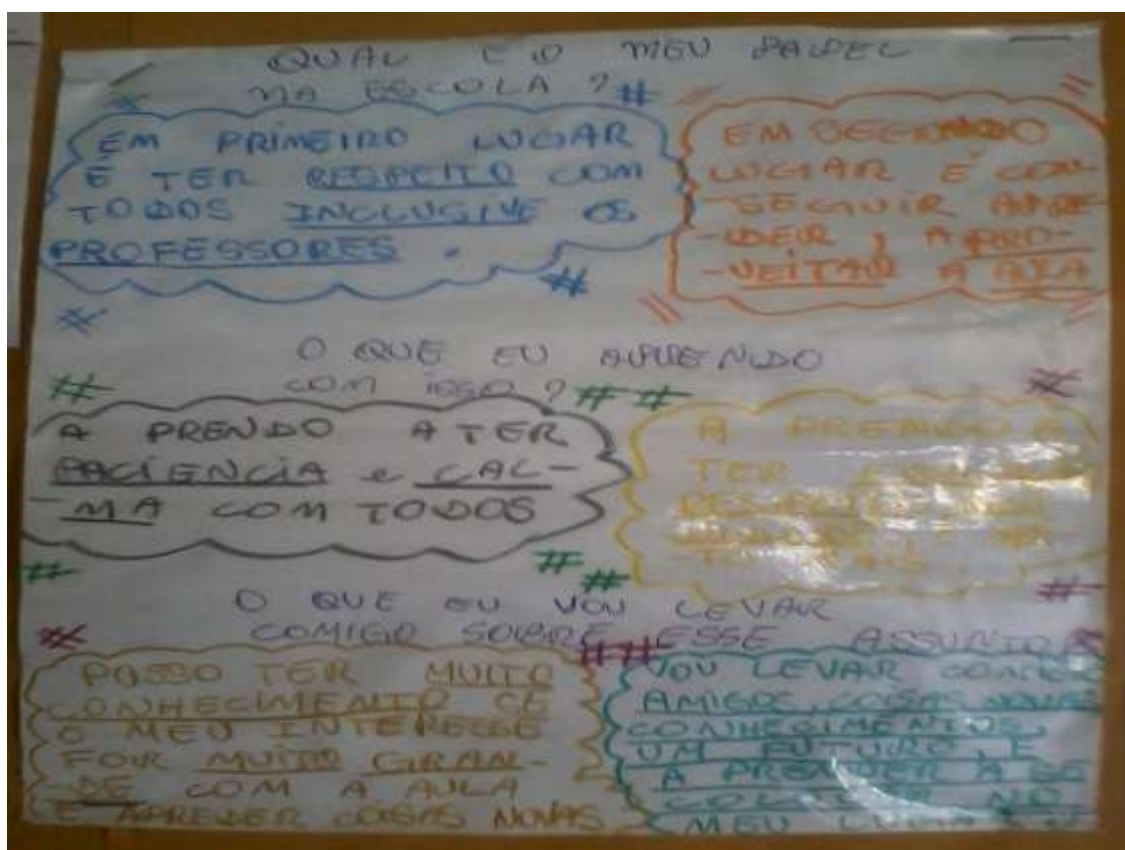 QUAL É O MEU PAPEL
NA ESCOLA ?
EM PRIMEIRO LUGAR
É TER RESPEITO COM
TODOS INCLUSIVE OS
PROFESSORES .
EM SEGUNDO
LUGAR É CON-
-SEGUIR APRE-
-DER , APRO-
-VEITAR A AULA
O QUE EU APRENDO
COM ISSO ?
A PRENDO A TER
PACIENCIA e CAL-
-MA COM TODOS
A PRENDO A
TER
O QUE EU VOU LEVAR
COMIGO SOBRE ESSE ASSUNTO
POSSO TER MUITO
CONHECIMENTO SE
O MEU INTERESSE
FOR MUITO GRAN-
DE COM A AULA
E APREDER COISAS NOVAS
VOU LEVAR COMIGO
AMIGOS, COISAS NOVAS
CONHECIMENTOS,
UM FUTURO, E
A PRENDER A SE
COLOCAR NO
MEU LUGAR